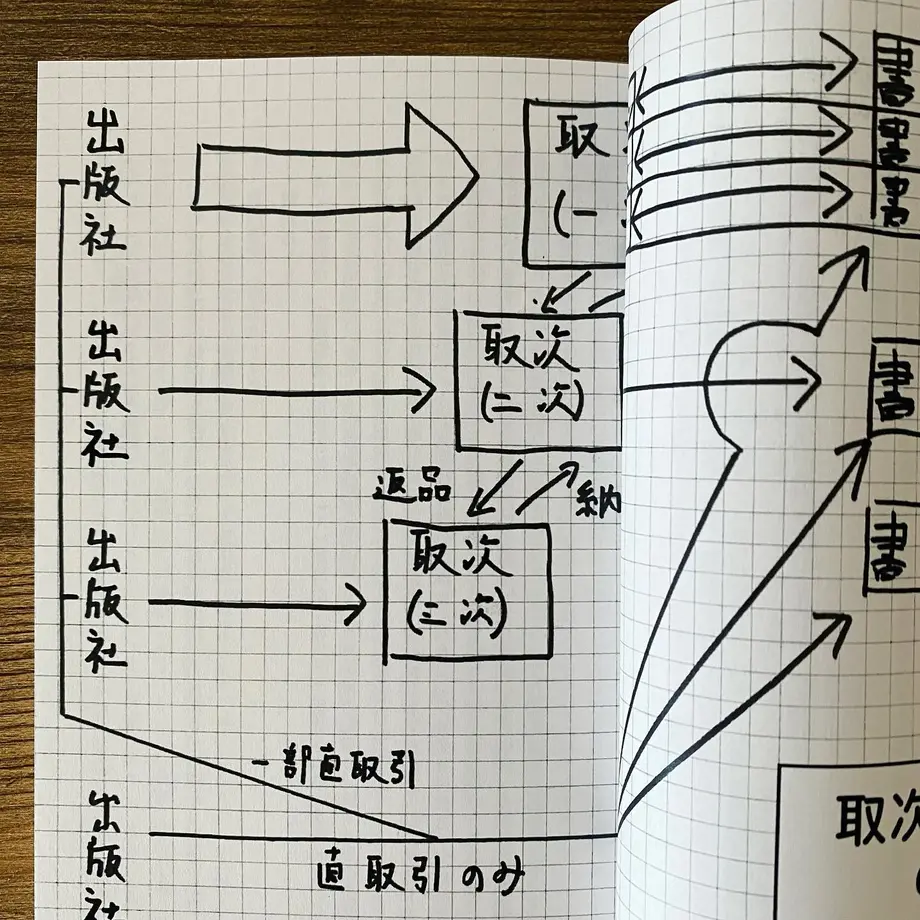 出版社
取
(一
書
書
書
出版社
取次
(二次)
書
返品
納
出版社
取次
(三次)
書
一部直取引
出版社
直取引のみ
取次
(